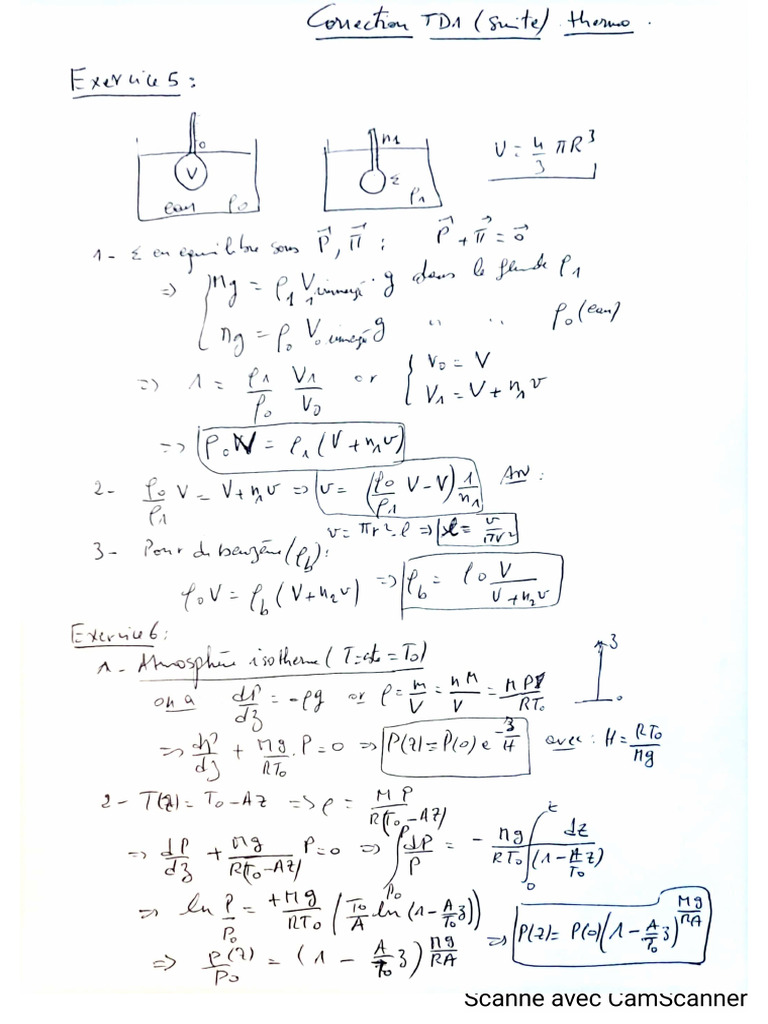 Correction TD1 (suite) thermo.
Exercice 5:
0
V
eau ρ0
n1
Σ
ρ1
V = 4/3 πR³
1- Σ en equilibre sous P⃗, Π⃗ : P⃗ + Π⃗ = 0⃗
=> { mg = ρ1 V1 immergé . g dans le fluide ρ1
mg = ρ0 V0 immergé g " " " ρ0 (eau)
=> 1 = ρ1/ρ0 V1/V0 or { V0 = V
V1 = V + n1 v
=> ρ0 V = ρ1 (V + n1 v)
2- ρ0/ρ1 V = V + n1 v => v = (ρ0/ρ1 V - V) 1/n1 AN :
v = πr². l => l = v/πr²
3- Pour du benzéne (ρb):
ρ0 V = ρb (V + n2 v) => ρb = ρ0 V/(V + n2 v)
Exercice 6:
1- Atmosphère isotherme (T=cte = T0)
z
0
on a dP/dz = -ρg or ρ = m/V = nM/V = MP/RT0
=> dP/dz + Mg/RT0 . P = 0 => P(z) = P(0) e^(-z/H) avec : H = RT0/Mg
2- T(z) = T0 - Az => ρ = MP/R(T0 - Az)
=> dP/dz + Mg/R(T0 - Az) P = 0 => ∫_P0^P dP/P = - Mg/RT0 ∫_0^z dz/(1 - A/T0 z)
=> ln P/P0 = +Mg/RT0 (T0/A ln (1 - A/T0 z))
=> P(z)/P0 = (1 - A/T0 z)^(Mg/RA) => P(z) = P(0) (1 - A/T0 z)^(Mg/RA)
Scanné avec CamScanner